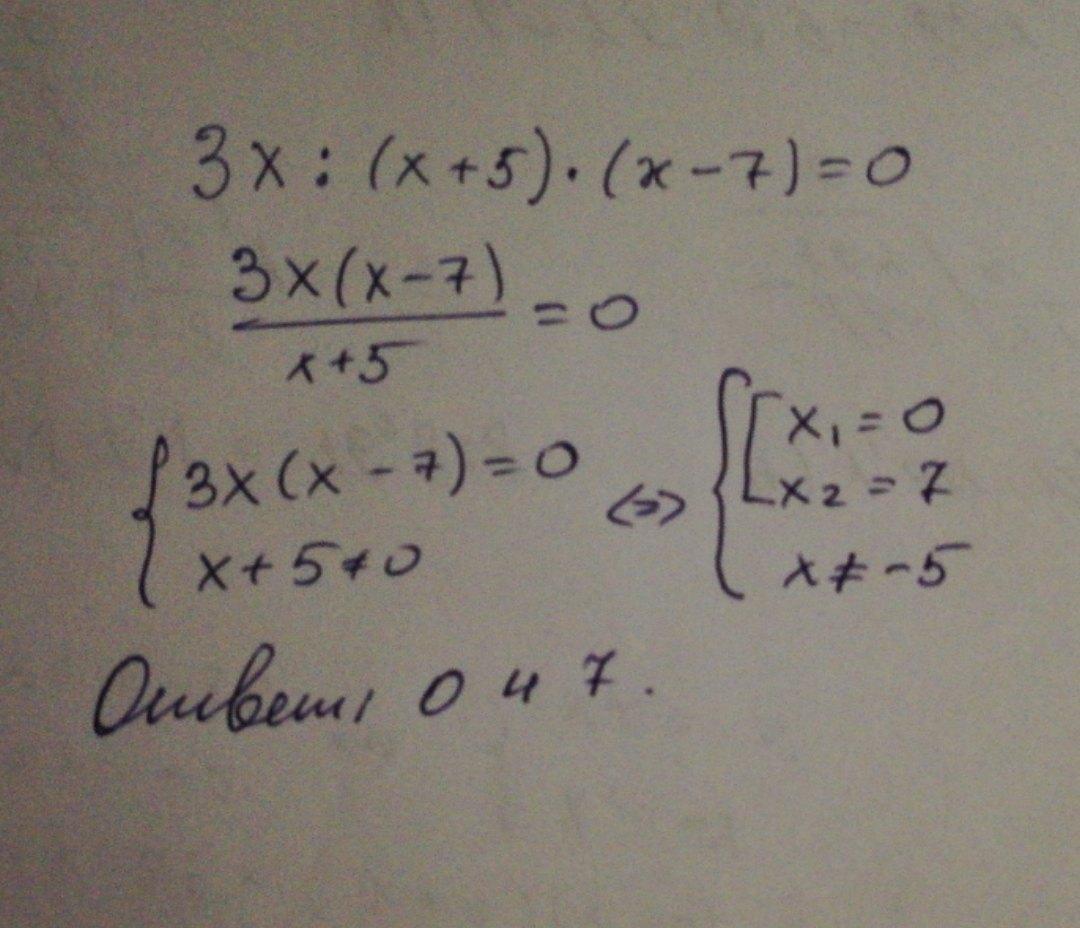 3x : (x+5)·(x-7)=0
3x(x-7)
x+5
= 0
{ 3x(x-7)=0
x+5≠0
<=> { [ x₁ = 0
x₂ = 7
x≠-5
Ответ: 0 и 7.